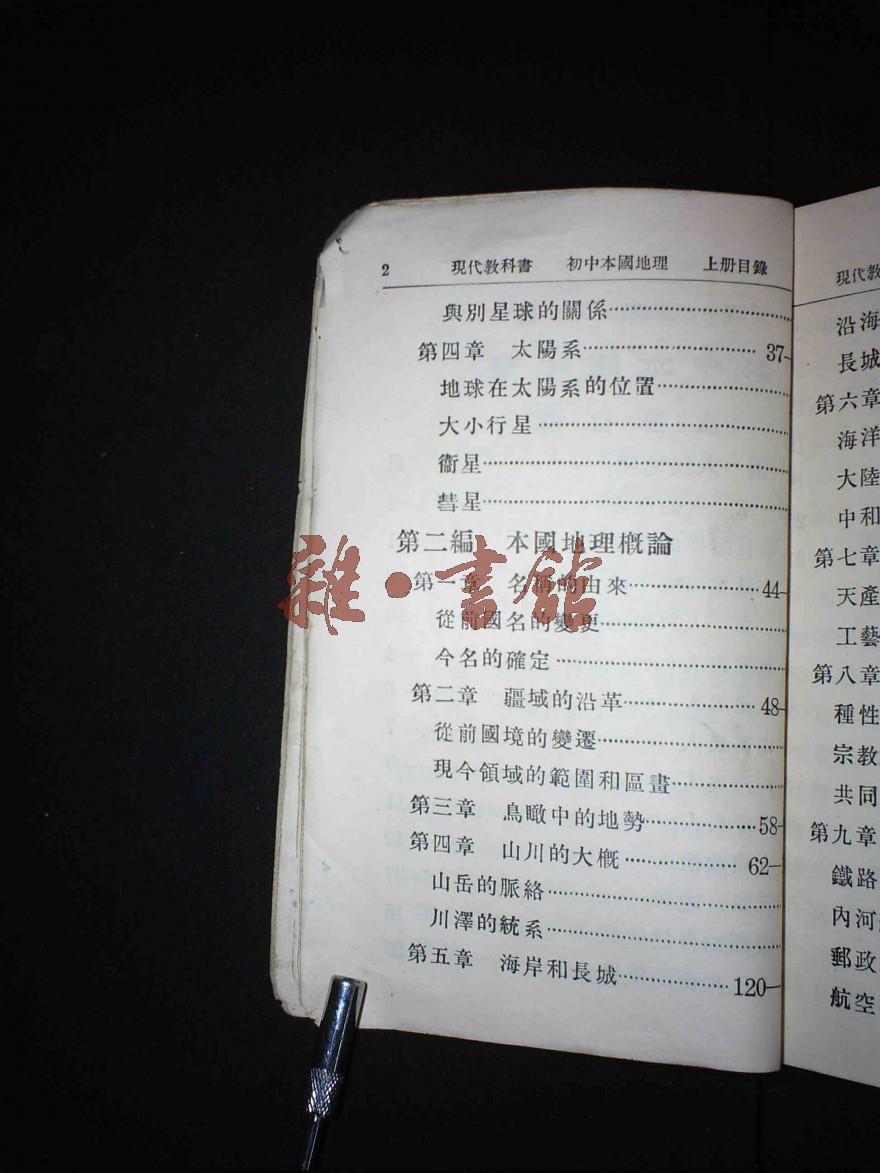 2 現代教科書 初中本國地理 上册目錄
與別星球的關係……………………
第四章 太陽系…………………… 37-
地球在太陽系的位置………………
大小行星……………………………
衞星…………………………………
彗星…………………………………
第二編 本國地理概論
第一章 名稱的由來………………44-
從前國名的變更……………………
今名的確定…………………………
第二章 疆域的沿革………………48-
從前國境的變遷……………………
現今領域的範圍和區畫……………
第三章 鳥瞰中的地勢……………58-
第四章 山川的大概……………… 62-
山岳的脈絡…………………………
川澤的統系…………………………
第五章 海岸和長城………………120-
雜·書館
現代教
沿海
長城
第六章
海洋
大陸
中和
第七章
天產
工藝
第八章
種性
宗教
共同
第九章
鐵路
內河
郵政
航空